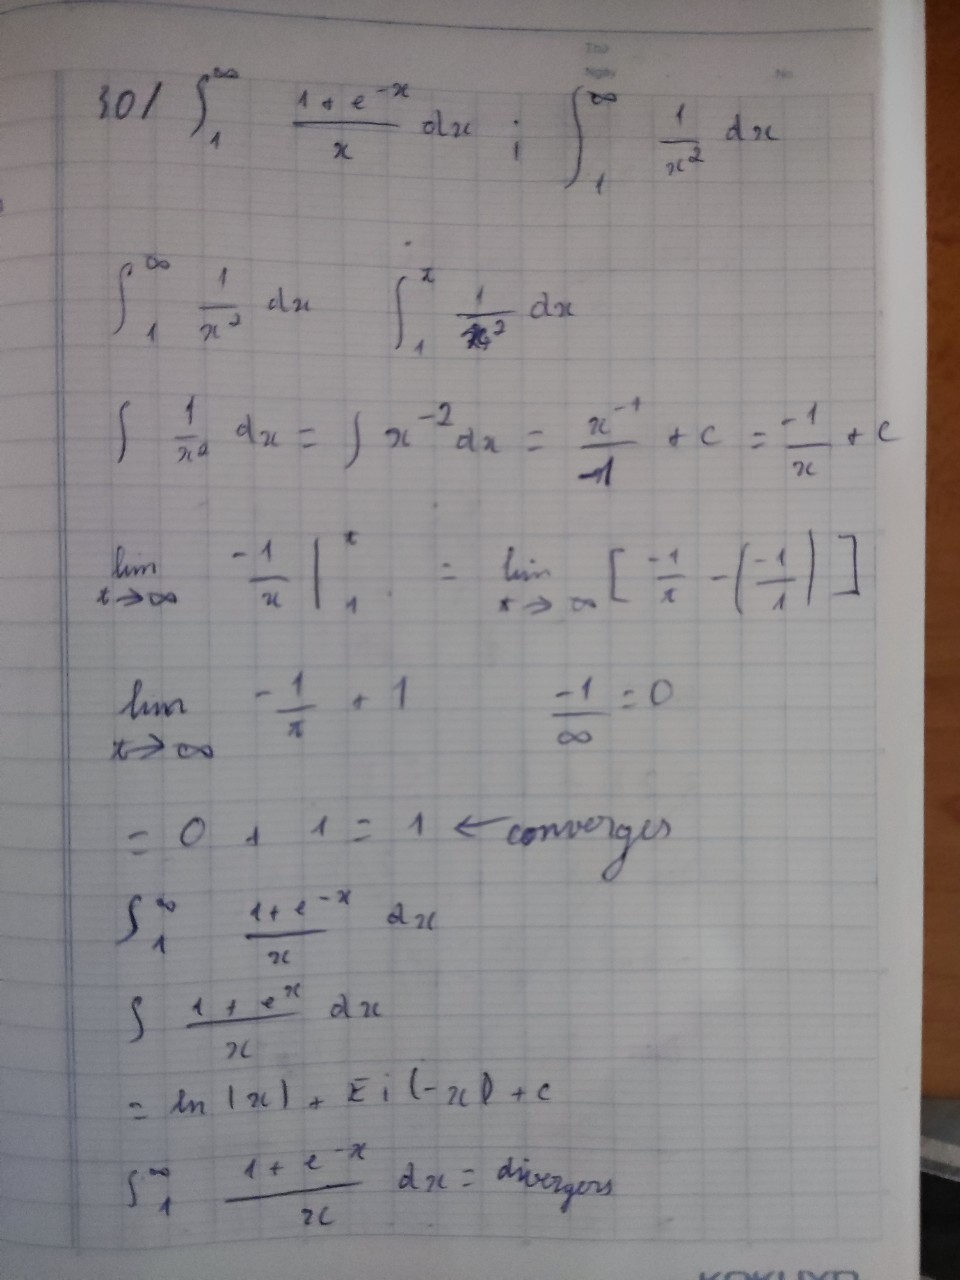 Thứ
Ngày No
30/ ∫₁^∞ (1 + e^(-x))/x dx ; ∫₁^∞ 1/x² dx
∫₁^∞ 1/x² dx ∫₁^t 1/x² dx
∫ 1/x² dx = ∫ x^(-2) dx = x^(-1)/-1 + c = -1/x + c
lim t→∞ -1/x |₁^t = lim t→∞ [ -1/t - (-1/1) ]
lim t→∞ -1/t + 1 -1/∞ = 0
= 0 + 1 = 1 ← converges
∫₁^∞ (1 + e^(-x))/x dx
∫ (1 + e^x)/x dx
= ln |x| + Ei(-x) + c
∫₁^∞ (1 + e^(-x))/x dx = divergers
KOKUYO